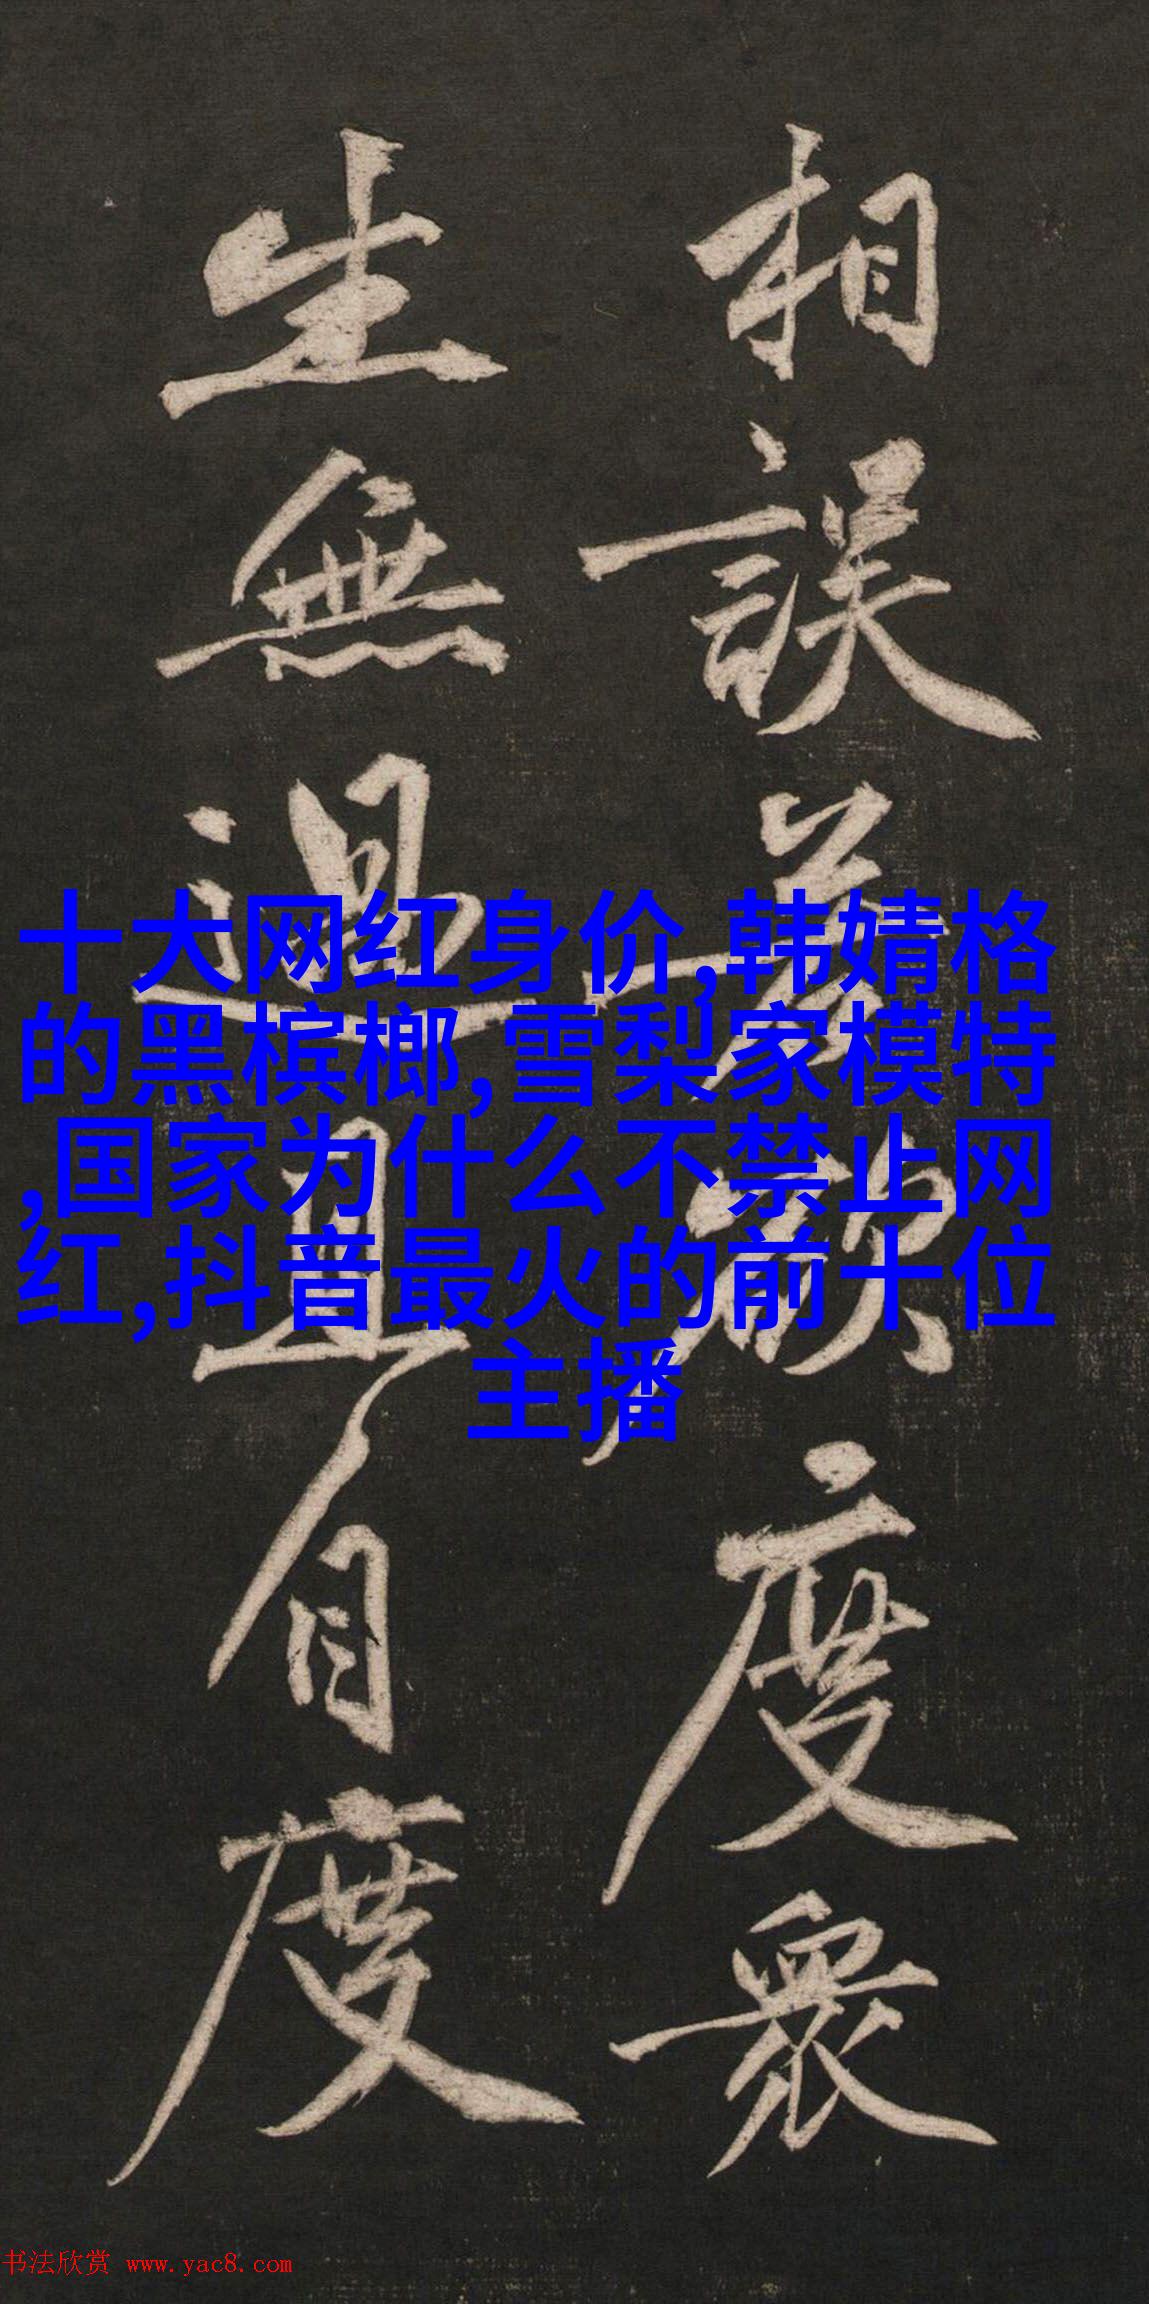 相誤若欲度衆
生無過且自度
十大网红身价,韩婧格
的黑槟榔,雪梨家模特
,国家为什么不禁止网
红,抖音最火的前十位
主播
书法欣赏 www.yac8.com